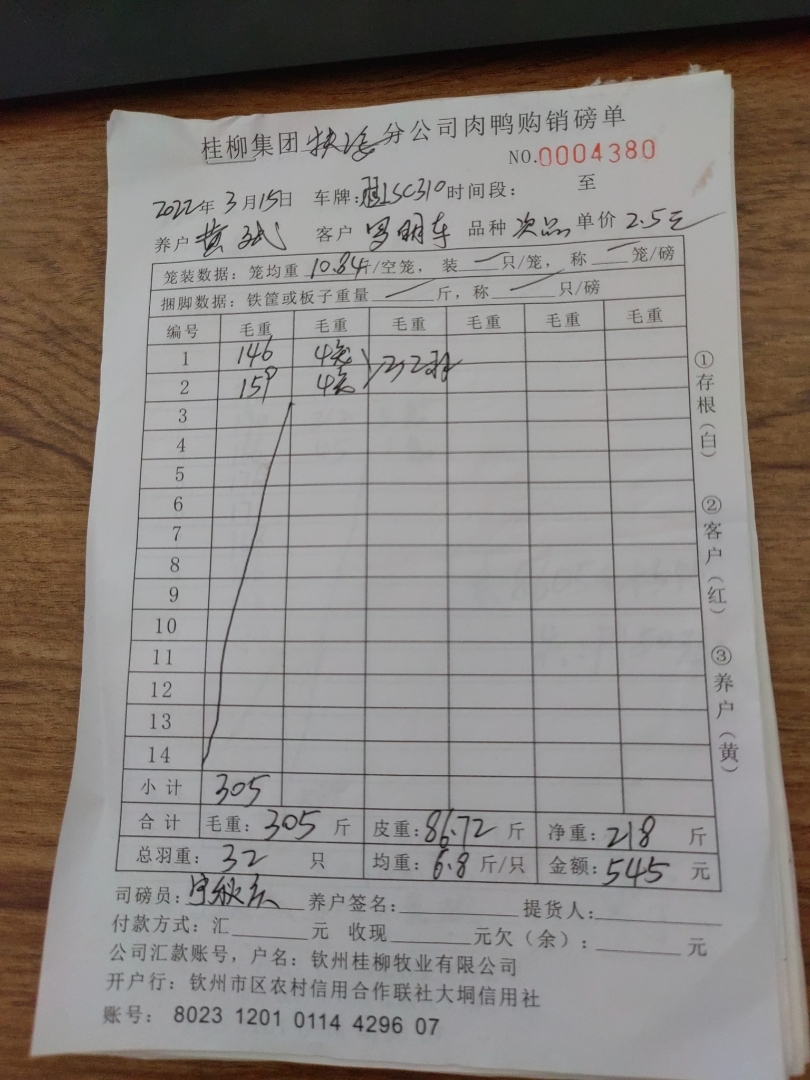 桂柳集团 分公司肉鸭购销磅单
NO.0004380
2022年3月15日 车牌:桂LSC310 时间段: 至
养户 黄 客户 罗明车 品种 次品 单价 2.5元
笼装数据: 笼均重 10.84斤/空笼, 装 只/笼, 称 笼/磅
捆脚数据: 铁筐或板子重量 斤, 称 只/磅
编号 毛重 毛重 毛重 毛重 毛重 毛重
1 146 4笼
2 159 4笼 32羽
3
4
5
6
7
8
9
10
11
12
13
14
小计 305
合计 毛重: 305 斤 皮重: 86.72 斤 净重: 218 斤
总羽重: 32 只 均重: 6.8 斤/只 金额: 545 元
司磅员: 养户签名: 提货人:
付款方式: 汇 元 收现 元欠(余): 元
公司汇款账号, 户名: 钦州桂柳牧业有限公司
开户行: 钦州市区农村信用合作联社大垌信用社
账号: 8023 1201 0114 4296 07
①存根(白)
②客户(红)
③养户(黄)